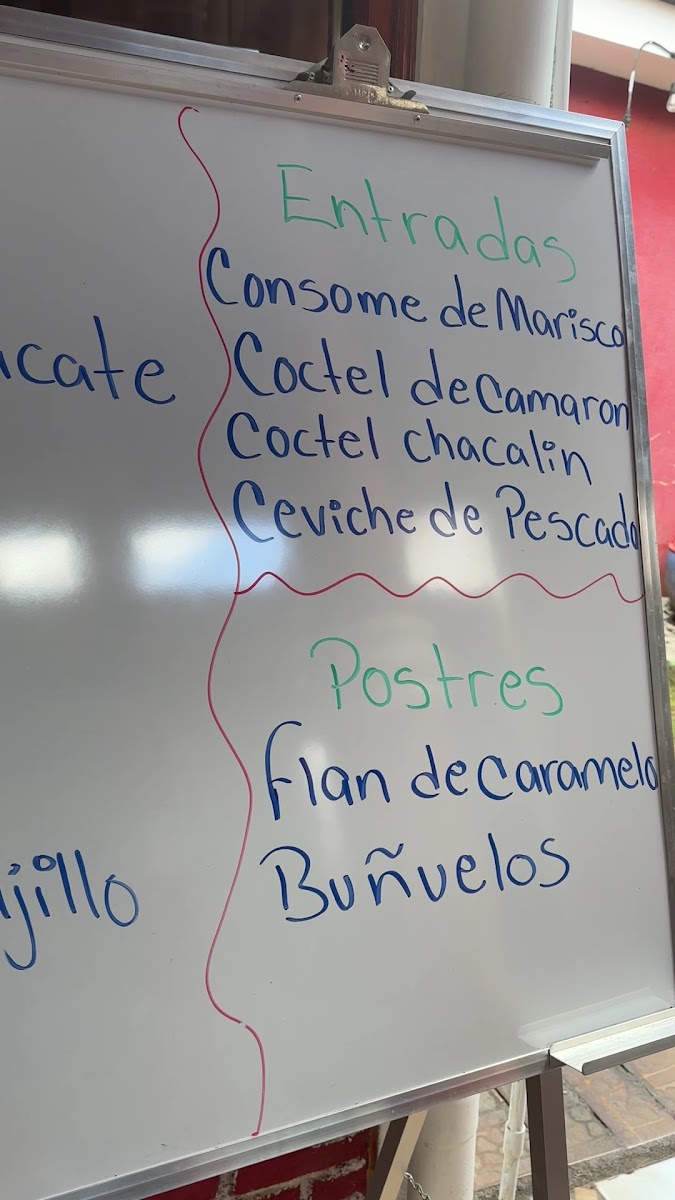 Entradas
Consome de Marisco
Coctel de Camaron
Coctel chacalin
Ceviche de Pescado
Postres
flan de Caramelo
Buñuelos